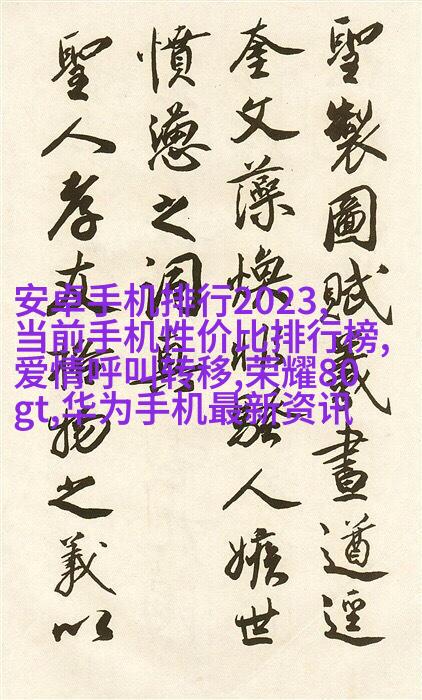 聖製圖賦義畫遒逕
奎文藻煥壯騷人嫉世
憤懣之詞喜
聖人孝友格物之義以
安卓手机排行2023,
当前手机性价比排行榜,
爱情呼叫转移,荣耀80
gt,华为手机最新资讯